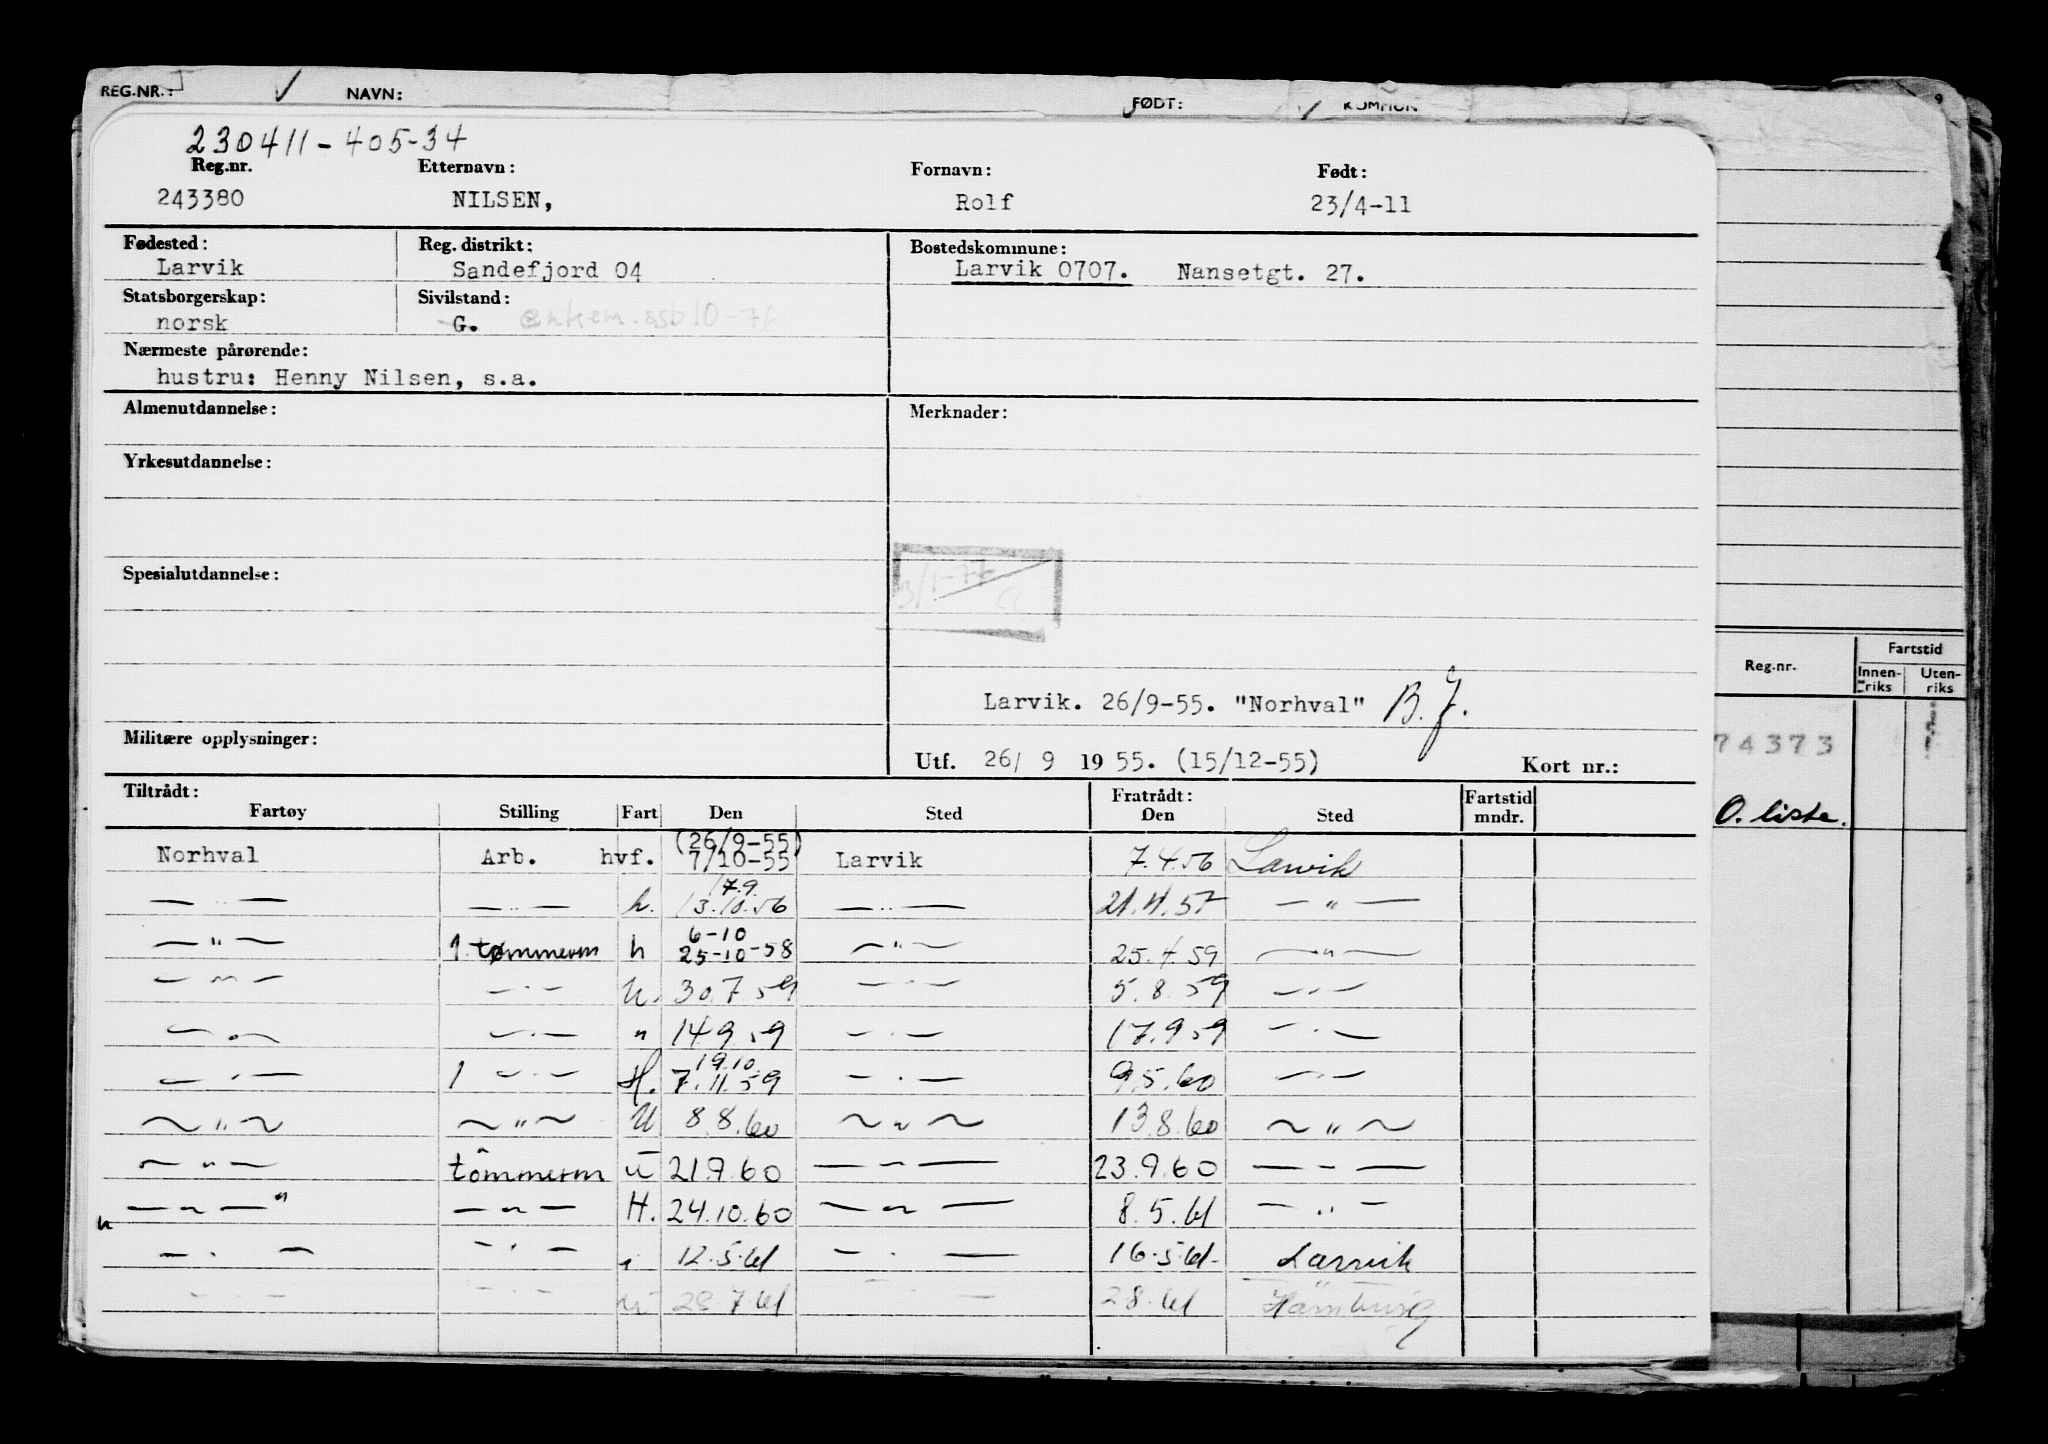 REG.NR.: NAVN: FØDT: KOMMUN
230411-405-34
Reg.nr. Etternavn: Fornavn: Født:
243380 NILSEN, Rolf 23/4-11
Fødested: Reg. distrikt: Bostedskommune:
Larvik Sandefjord 04 Larvik 0707. Nansetgt. 27.
Statsborgerskap: Sivilstand:
norsk G.
Nærmeste pårørende:
hustru: Henny Nilsen, s.a.
Almenutdannelse: Merknader:
Yrkesutdannelse:
Spesialutdannelse:
Larvik. 26/9-55. "Norhval" B.J.
Militære opplysninger:
Utf. 26/ 9 1955. (15/12-55) Kort nr.:
Tiltrådt: Fratrådt:
Fartøy Stilling Fart Den Sted Den Sted Fartstid mndr.
(26/9-55)
Norhval Arb. hvf. 7/10-55 Larvik 7.4.56 Larvik
17.9.
— " — — " — h. 13.10.56 — " — 21.4.57 — " —
6-10
— " — 1. tømmerm h 25-10-58 — " — 25.4.59 — " —
— " — — " — U. 30.7.59 — " — 5.8.59 — " —
— " — — " — " 14.9.59 — " — 17.9.59 — " —
19.10.
— " — 1 — " — H. 7.11.59 — " — 9.5.60 — " —
— " — — " — U 8.8.60 — " — 13.8.60 — " —
— " — tømmerm u 21.9.60 — " — 23.9.60 — " —
— " — " — " — H. 24.10.60 — " — 8.5.61 — " —
— " — — " — " 12.5.61 — " — 16.5.61 Larvik
— " — — " — u 28.7.61 — " — 28.61 Hamburg
Reg.nr. Fartstid
Innen-riks Uten-riks
74373
O. liste.